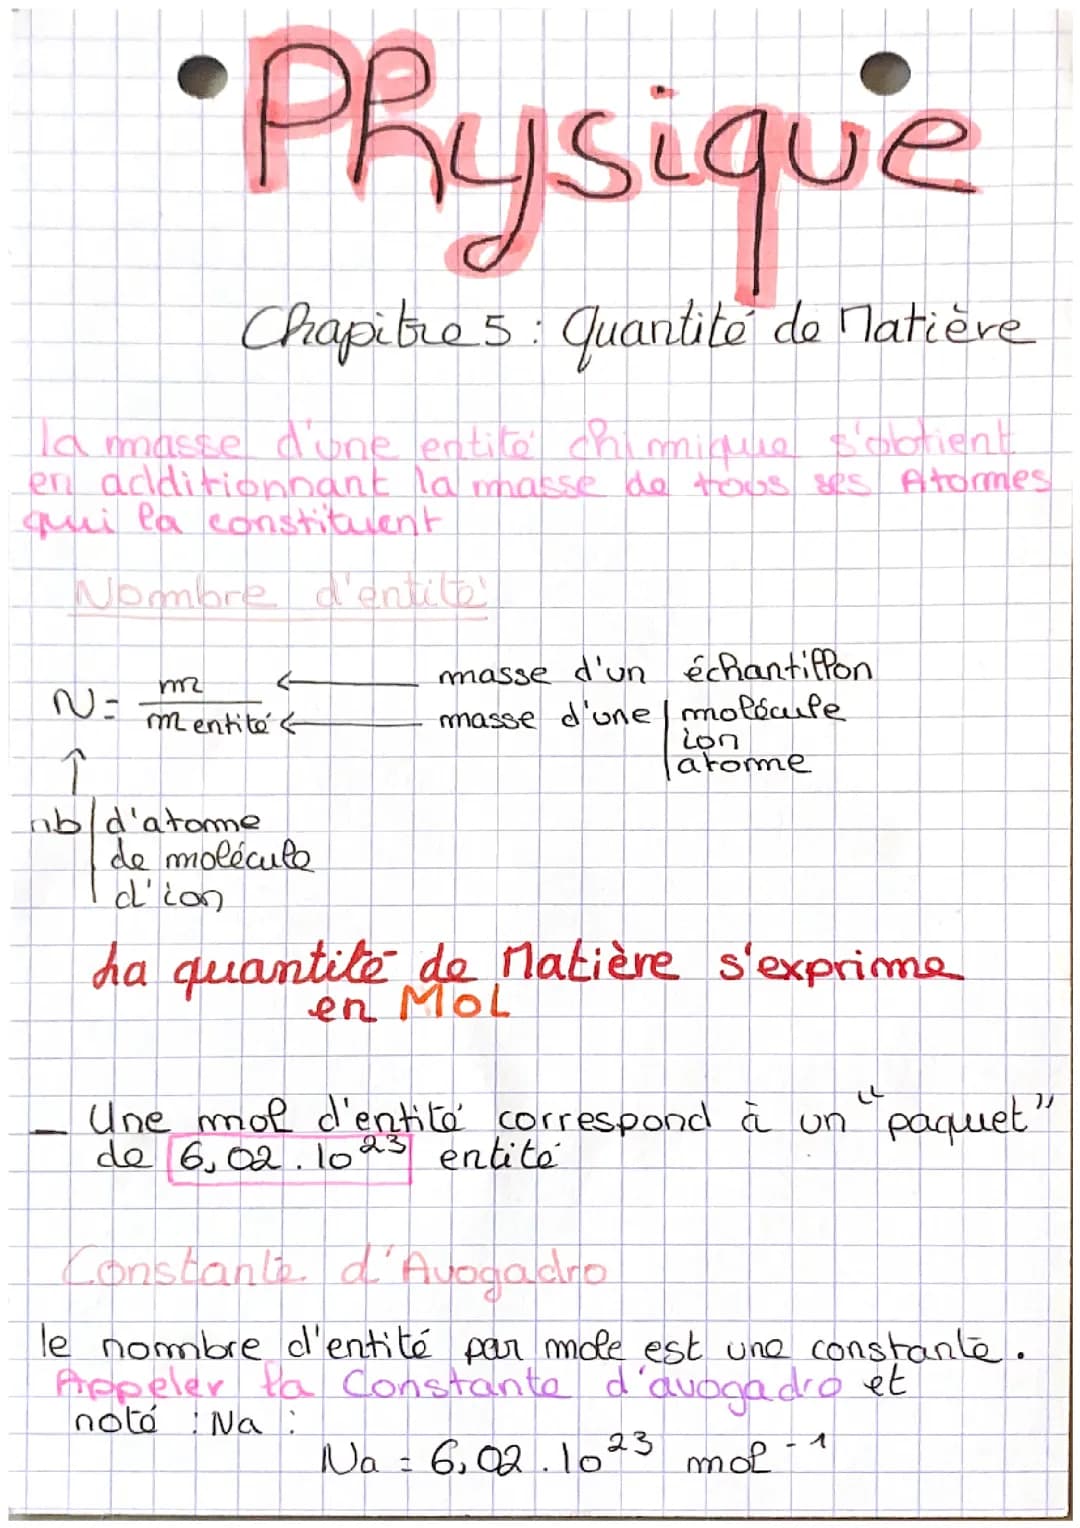 Physique
Chapitre 5 : Quantité de Matière
la masse d'une entité chimique s'obtient
en additionnant la masse de tous ses Atomes
qui la constituent
Nombre d'entité
N = m / m entité
masse d'un échantillon
masse d'une molécule
ion
atome
nb d'atome
de molécule
d'ion
La quantité de Matière s'exprime
en MOL
_ Une mol d'entité correspond à un "paquet"
de 6,02 . 10²³ entité
Constante d'Avogadro
le nombre d'entité par mole est une constante .
Appeler la Constante d'avogadro et
noté : Na :
Na = 6,02 . 10²³ mol⁻¹